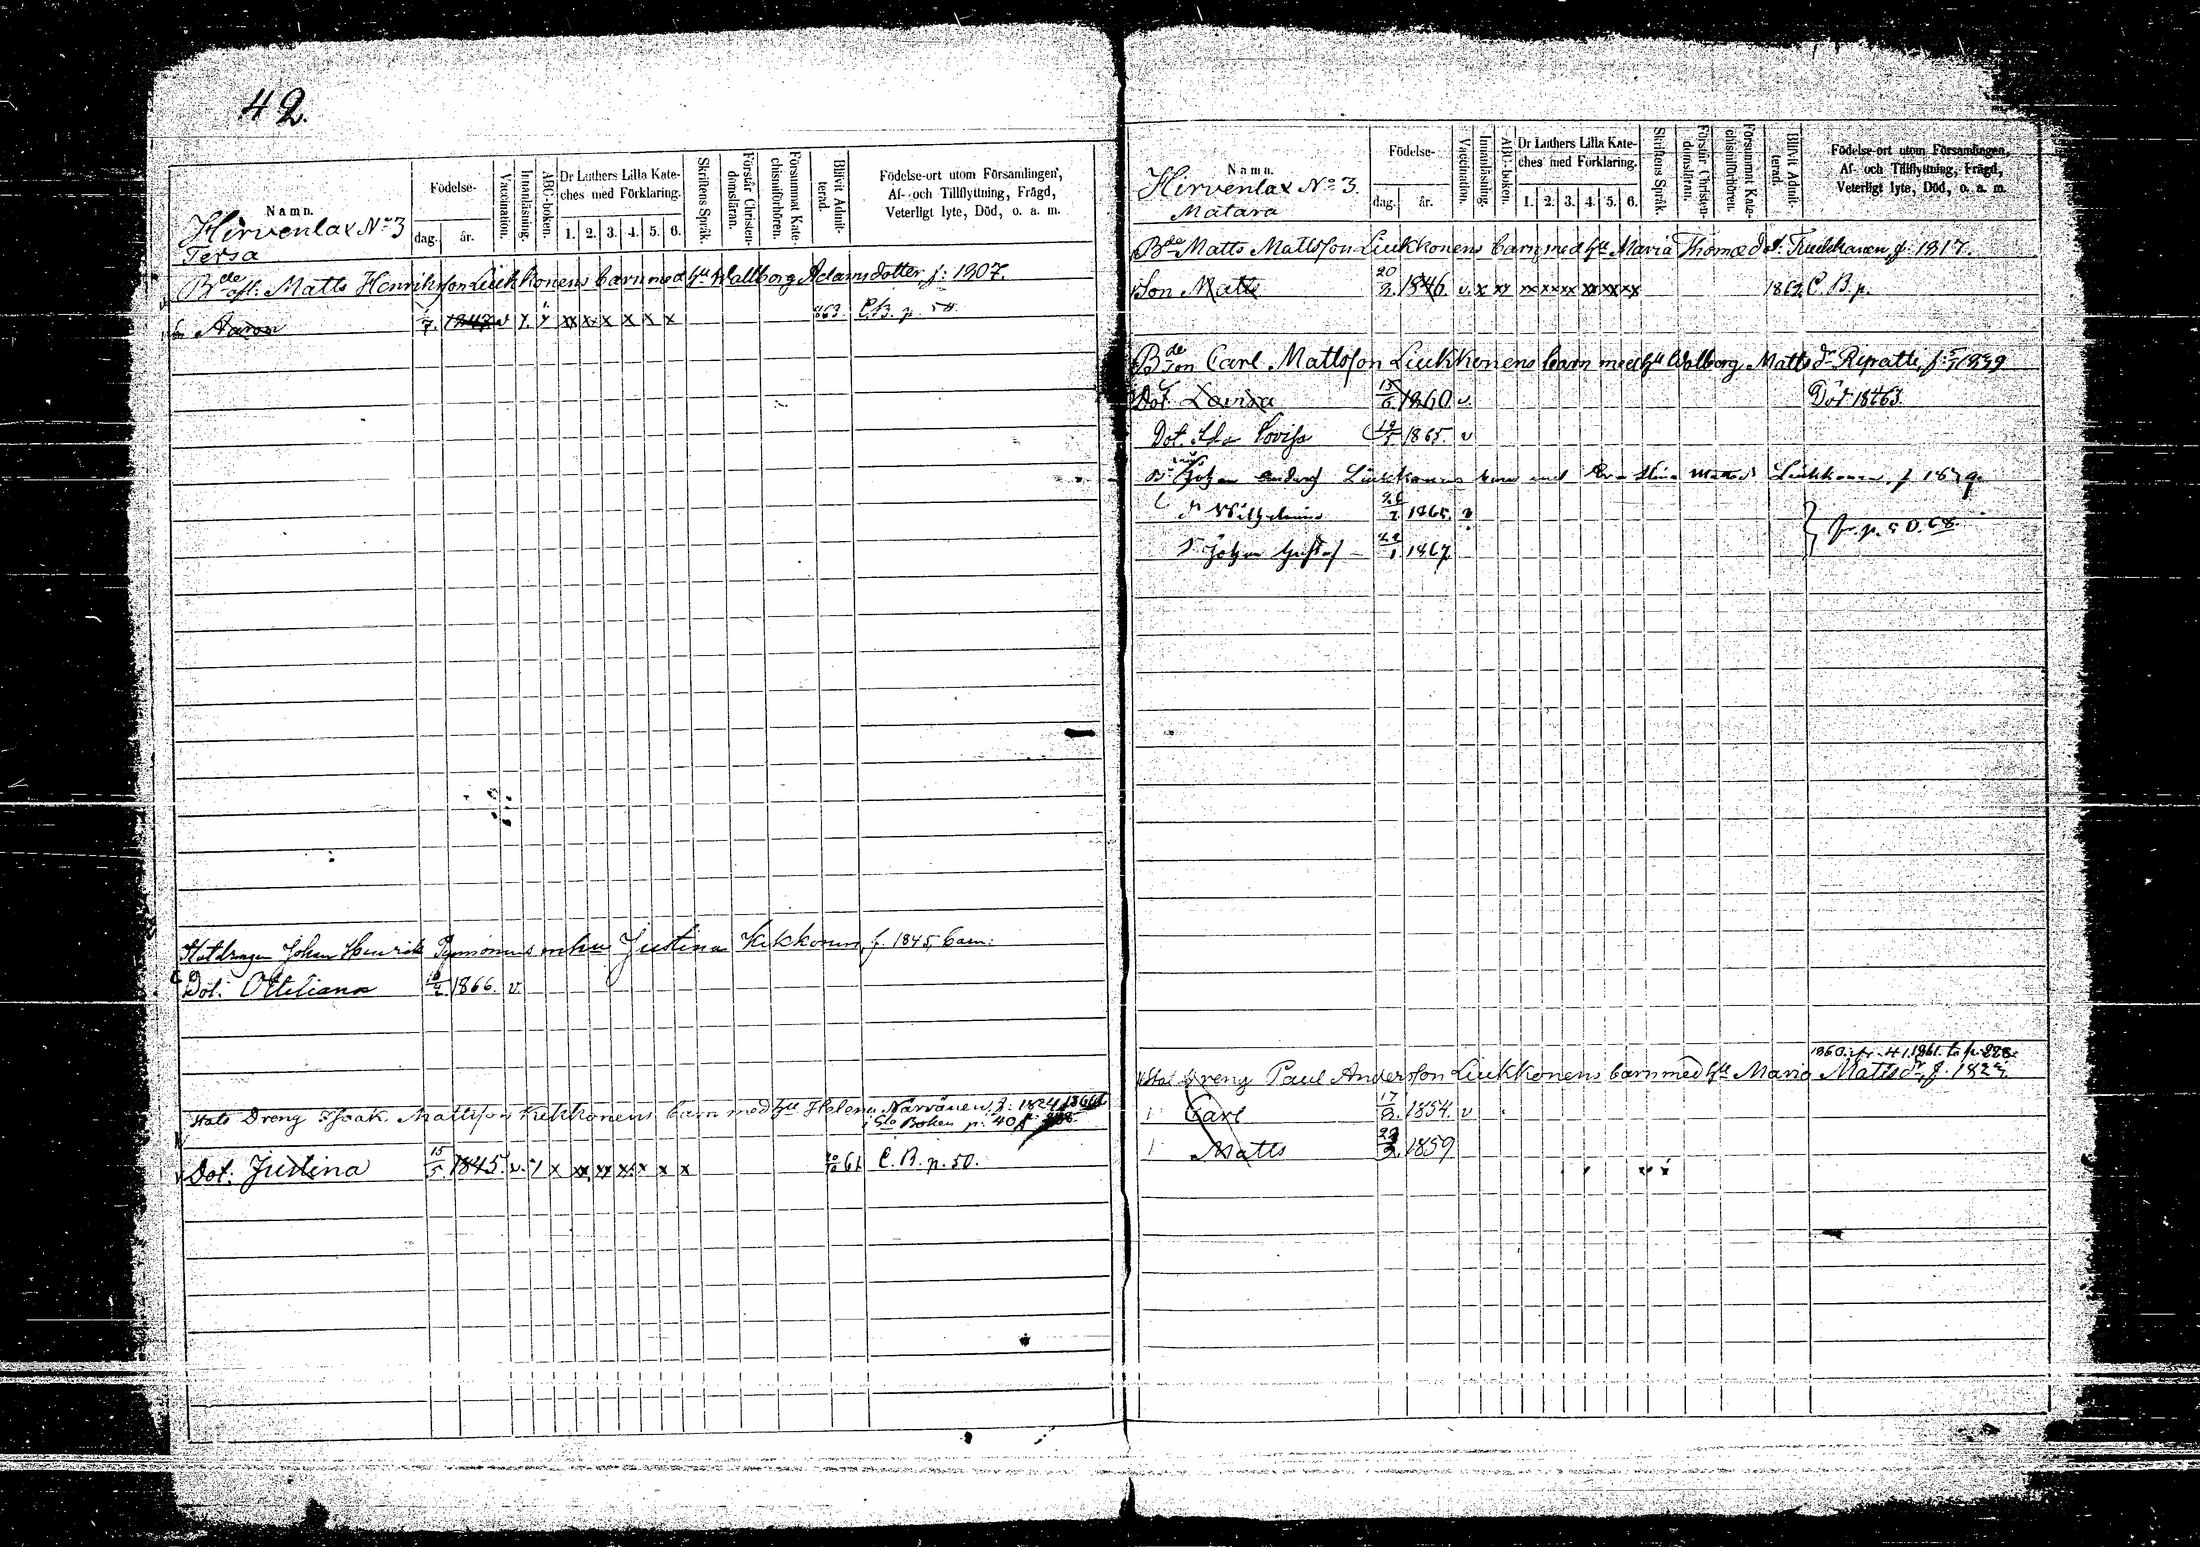 42.
Namn.
Hirvenlax No 3
Tersa
Födelse-
dag. år.
Vaccination.
Innanläsning.
ABC-boken.
Dr Luthers Lilla Kate-
ches med Förklaring.
1. 2. 3. 4. 5. 6.
Skriftens Språk.
Förstår Christen-
domsläran.
Försummat Kate-
chismiförhören.
Blifvit Admit-
terad.
Födelse-ort utom Församlingen,
Af- och Tillflyttning, Frägd,
Veterligt lyte, Död, o. a. m.
Bde afl. Matts Henriksson Liukkonens barn med hu Wallborg Adamsdotter f: 1807.
Aaron 7. 1843 v x x xx xx x x x x 863. C.B. p 58
Johan Henrik Justina Kekkonen f. 1845, barn:
Dot. Ottiliana 1866. v.
Stats Dreng Isaak Mattsson Kekkonens barn med hu Helena Närvänen, f: 1824
Boken p: 40
Dot. Justina 15/5. 1845. v. x x xx xx xx x x x 61 C.B. p. 50.
Namn.
Hirvenlax No 3.
Matara
Födelse-
dag. år.
Vaccination.
Innanläsning.
ABC-boken.
Dr Luthers Lilla Kate-
ches med Förklaring.
1. 2. 3. 4. 5. 6.
Skriftens Språk.
Förstår Christen-
domsläran.
Försummat Kate-
chismiförhören.
Blifvit Admit-
terad.
Födelse-ort utom Församlingen,
Af- och Tillflyttning, Frägd,
Veterligt lyte, Död, o. a. m.
Bde Matts Mattsson Liukkonens barn med hu Maria Thomædot: f: 1817.
Son Matts 20/2. 1846. v. x xx xx xx xx xx xx xx 1862. C.B. p.
Bde Son Carl Mattsson Liukkonens barn med hu Walborg Matts dr Ripatti, f: 1839
Dot. Lovisa 15/6 1860 v. Död 1863.
Dot. Ida Lovisa 1865. v
Johan Liukkonens barn med Stina Matts dr Liukkonen, f 1839
Wilhelmina 26/2 1865.
Johan Gustaf 22/1 1867 fr. p. 50. 68
1860 fr. 41. 1861. to p. 228.
Stats Dreng Paul Andersson Liukkonens barn med hu Maria Mattsdr, f: 1822
Carl 17/2. 1854. v
Matts 1859